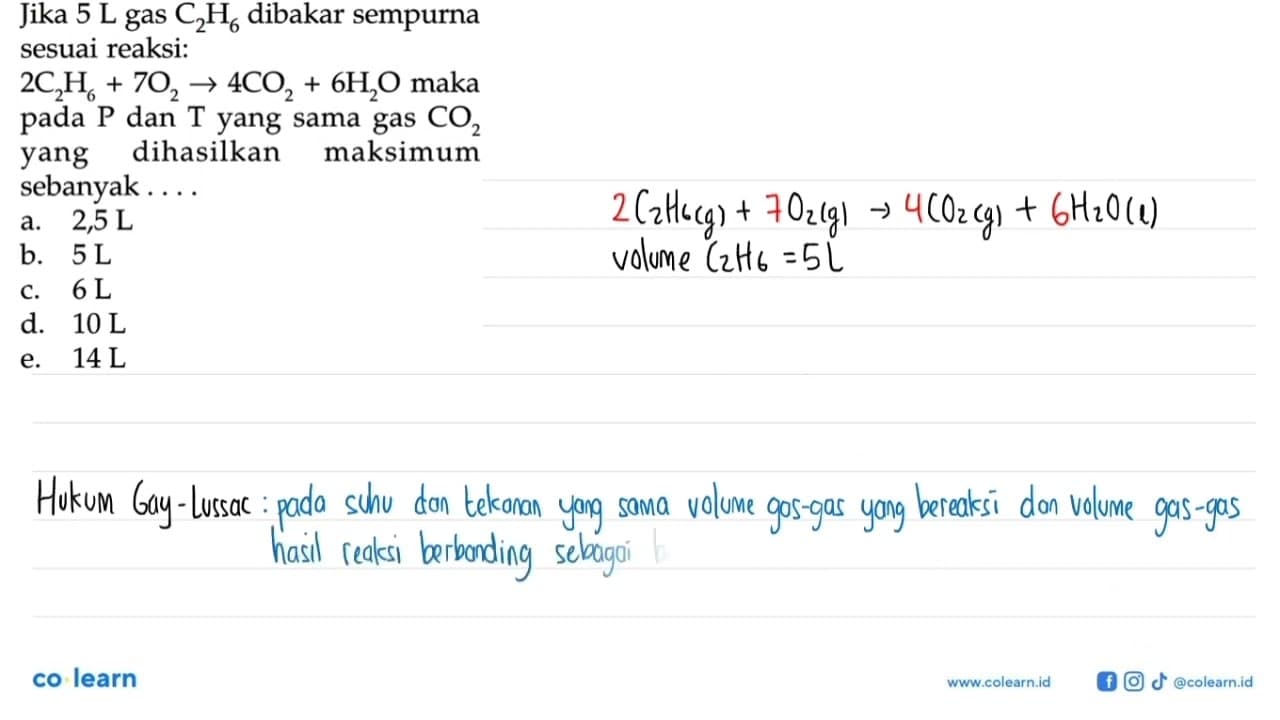 Jika 5 L gas C₂H₆ dibakar sempurna
sesuai reaksi:
2C₂H₆ + 7O₂ → 4CO₂ + 6H₂O maka
pada P dan T yang sama gas CO₂
yang dihasilkan maksimum
sebanyak . . . .
a. 2,5 L
b. 5 L
c. 6 L
d. 10 L
e. 14 L
2C₂H₆(g) + 7O₂(g) → 4CO₂(g) + 6H₂O(l)
volume C₂H₆ = 5L
Hukum Gay-Lussac : pada suhu dan tekanan yang sama volume gas-gas yang bereaksi dan volume gas-gas
hasil reaksi berbanding sebagai b
co learn
www.colearn.id
@colearn.id